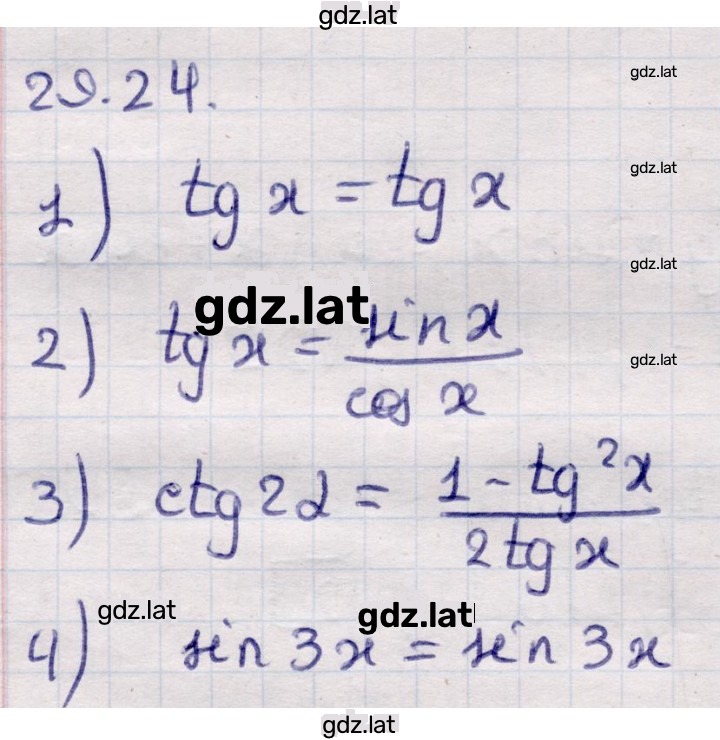 gdz.lat
29.24.
gdz.lat
1) tg x = tg x
gdz.lat
gdz.lat
gdz.lat
2) tg x = sin x / cos x
gdz.lat
3) ctg 2α = 1 - tg²x / 2 tg x
gdz.lat
gdz.lat
4) sin 3x = sin 3x
gdz.lat